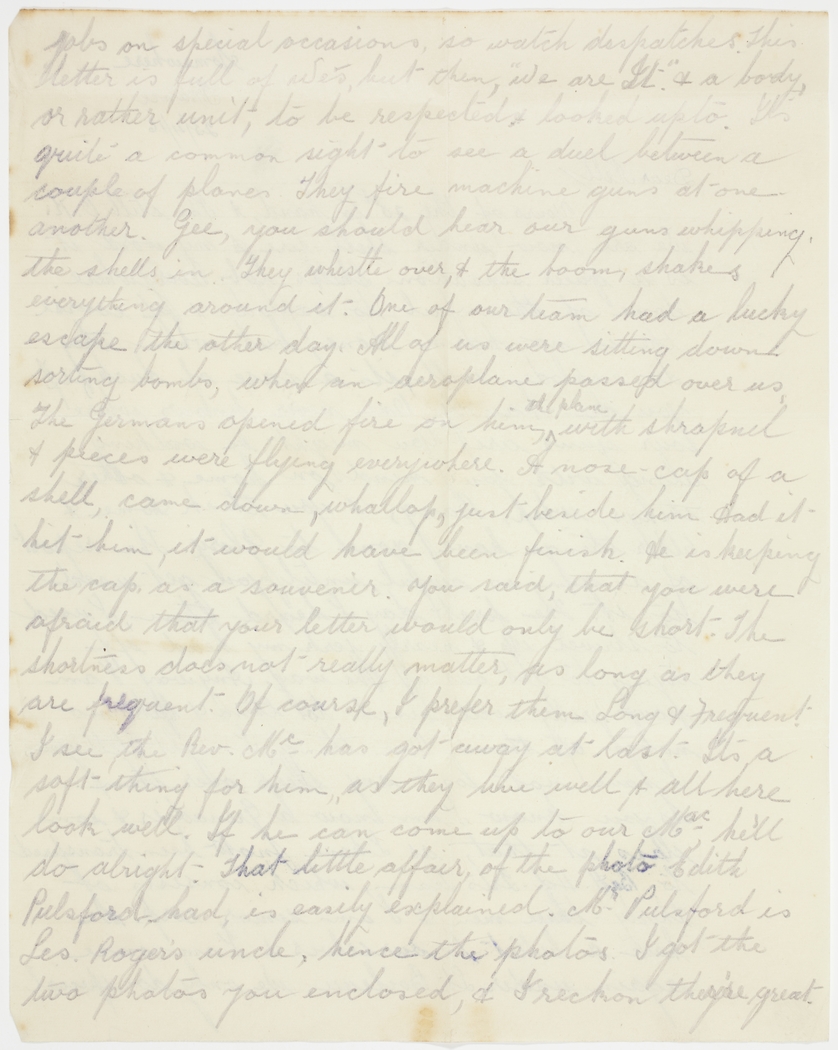 jobs on special occasions, so watch despatches. This
letter is full of We's, but then, "We are It." & a body,
or rather unit, to be respected & looked upto. It's
quite a common sight to see a duel between a
couple of planes. They fire machine guns at one
another. Gee, you should hear our guns whipping
the shells in. They whistle over, & the boom, shakes
everything around it. One of our team had a lucky
escape the other day. All of us were sitting down
sorting bombs, when an aeroplane passed over us,
The Germans opened fire on him, the plane, with shrapnel
& pieces were flying everywhere. A nose-cap of a
shell, came down, whallop, just beside him Had it
hit him, it would have been finish. He is keeping
the cap. as a souvenir. You said, that you were
afraid that your letter would only be short. The
shortness does not really matter, as long as they
are frequent. Of course, I prefer them Long & Frequent.
I see the Rev. Mc has got away at last. Its a
soft thing for him, as they live well & all here
look well. If he can come up to our Mac he'll
do alright. That little affair, of the photo Edith
Pulsford had, is easily explained. Mr Pulsford is
Les. Rogers uncle, hence the photos. I got the
two photos you enclosed, & I reckon they're great.